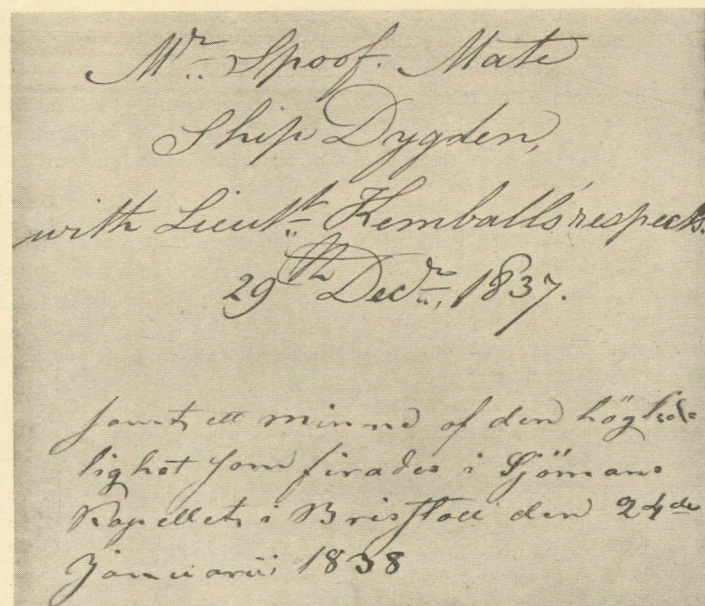 Mr. Spoof. Mate
Ship Dygden,
with Lieutt. Kemball's respects.
29th Decr., 1837.
samt ett minne af den högtid=
lighet som firades i Sjömans
Kapellet i Bristoll den 24de
Januarii 1838